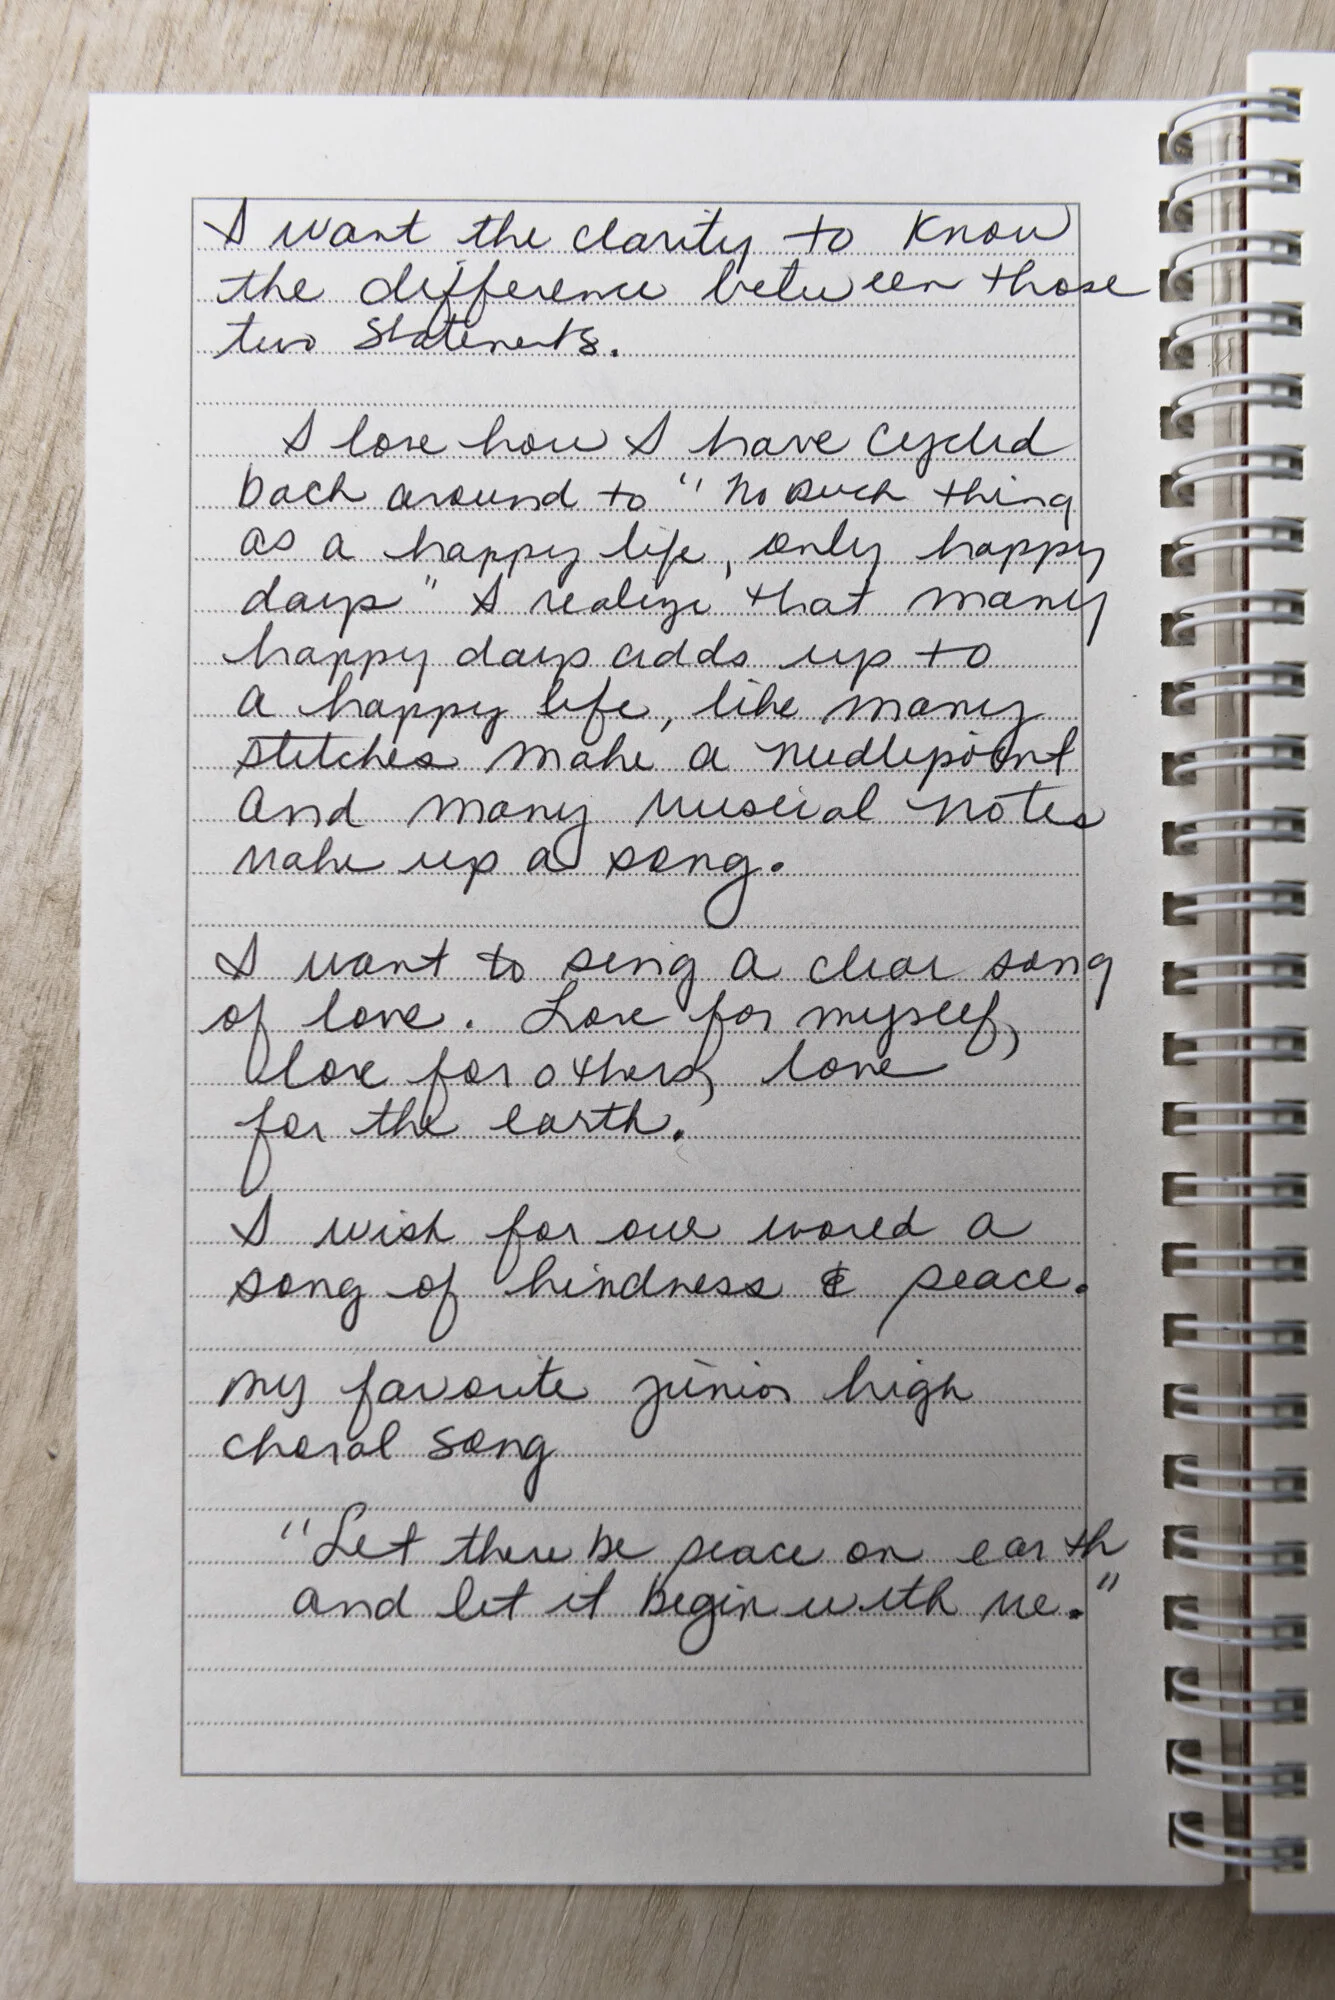 I want the clarity to know
the difference between those
two statements.
I love how I have cycled
back around to "No such thing
as a happy life, only happy
days" I realize that many
happy days adds up to
a happy life, like many
stitches make a needlepoint
and many musical notes
make up a song.
I want to sing a clear song
of love. Love for myself,
love for others, love
for the earth.
I wish for our world a
song of kindness & peace.
my favorite junior high
choral song
"Let there be peace on earth
and let it begin with me."